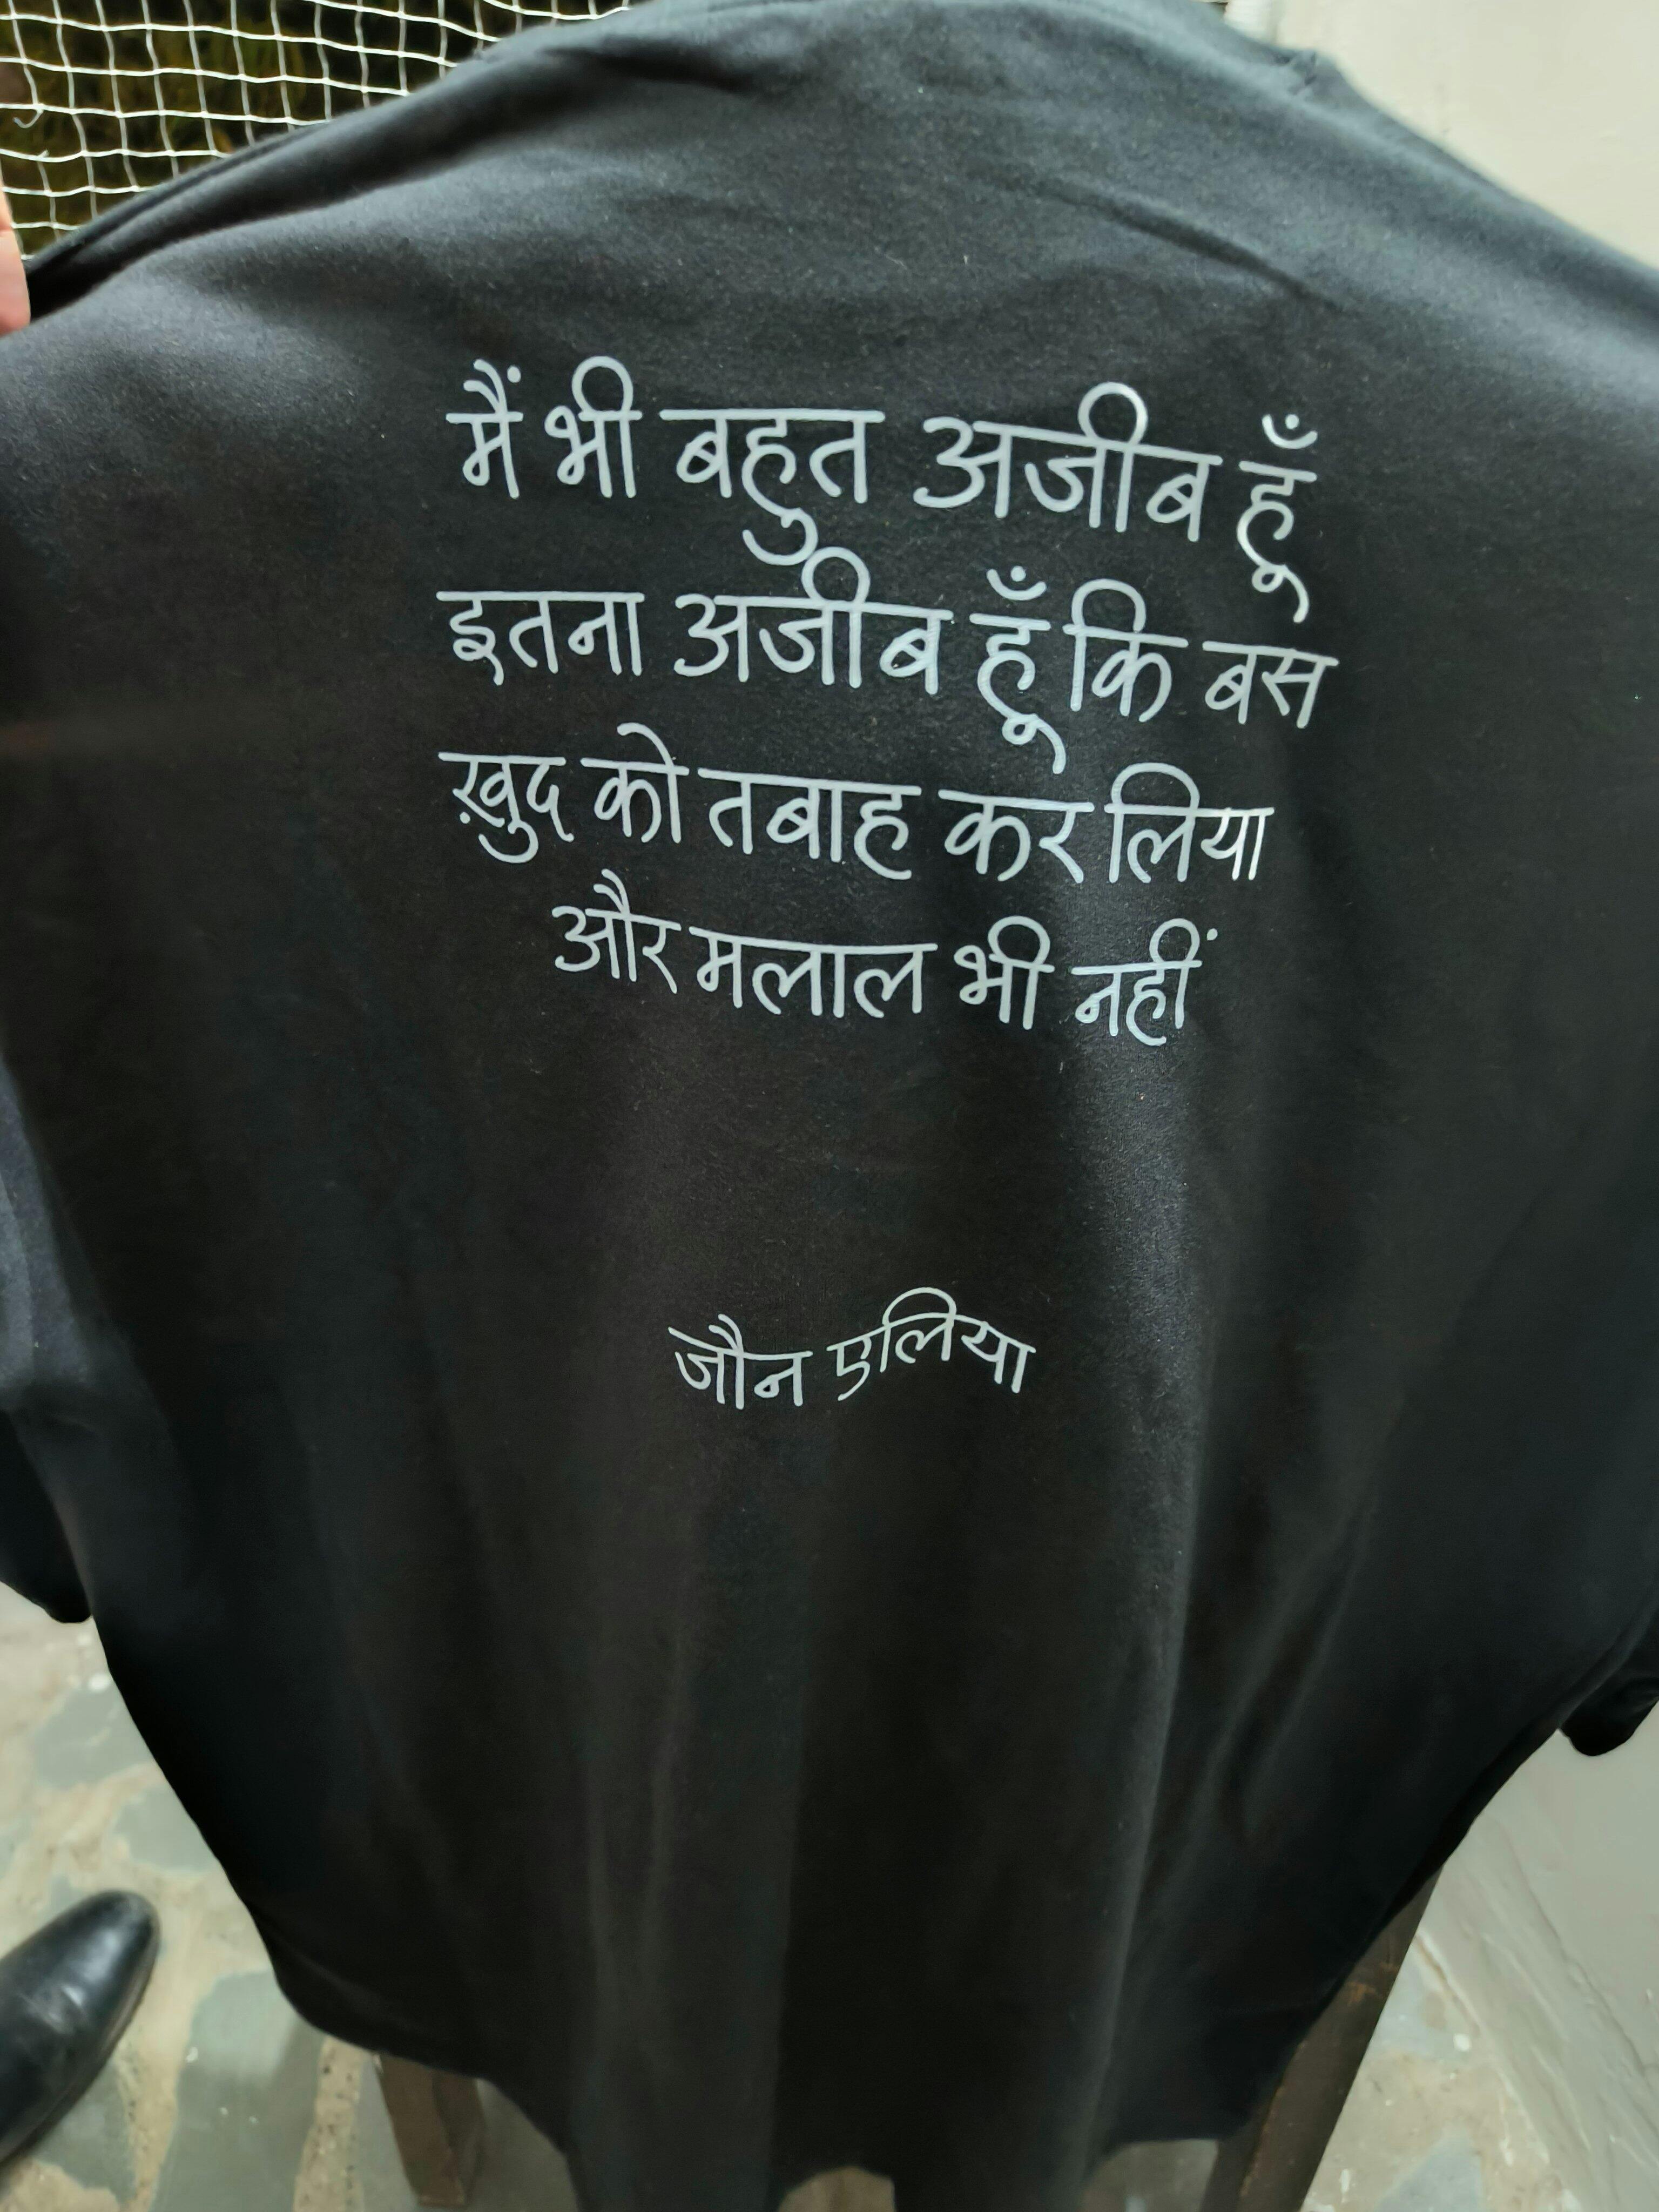 मैं भी बहुत अजीब हूँ
इतना अजीब हूँ कि बस
ख़ुद को तबाह कर लिया
और मलाल भी नहीं
जौन एलिया